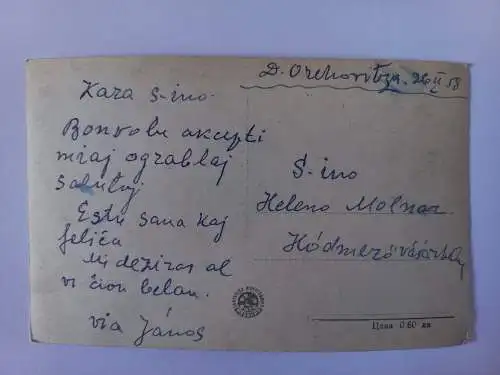 D. Orehovitza. 26 II 58
Kara s-ino.
Bonvolu akcepti
miaj ograblaj
salutoj
Estu sana kaj
feliĉa
Mi deziras al
vi ĉion belan.
via János
S-ino
Heleno Molnar
Hódmezővásárhely
Цена 0.60 лв